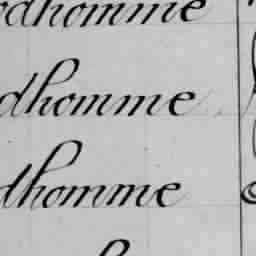 odhomme
dhomme
dhomme